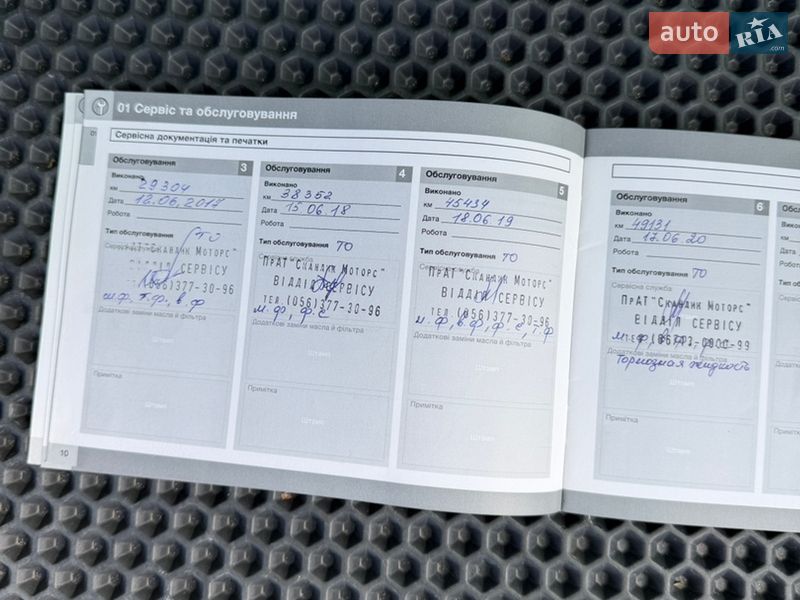 auto RIA .com
01 Сервіс та обслуговування
Сервісна документація та печатки
Обслуговування 3
Виконано
км 29304
Дата 12.06.2017
Робота
Тип обслуговування ТО
"Скандик Моторс"
СЕРВІСУ
(056)377-30-96
м.ф, т.ф, в.ф
Додаткові заміни масла й фільтра
Штамп
Примітка
Штамп
10
Обслуговування 4
Виконано
км 38352
Дата 15.06.18
Робота
Тип обслуговування ТО
ПрАТ "Скандик Моторс"
ВІДДІЛ СЕРВІСУ
тел. (056)377-30-96
м.ф, ф.с
Додаткові заміни масла й фільтра
Штамп
Примітка
Штамп
Обслуговування 5
Виконано
км 45434
Дата 18.06.19
Робота
Тип обслуговування ТО
ПрАТ "Скандик Моторс"
ВІДДІЛ СЕРВІСУ
тел. (056)377-30-96
м.ф, в.ф, ф.с, т.ф
Додаткові заміни масла й фільтра
Штамп
Примітка
Штамп
Обслуговування 6
Виконано
км 49131
Дата 17.06.20
Робота
Тип обслуговування ТО
Сервісна служба
ПрАТ "Скандик Моторс"
ВІДДІЛ СЕРВІСУ
Додаткові заміни масла й фільтра
тормозная жидкость
Штамп
Примітка
Штамп